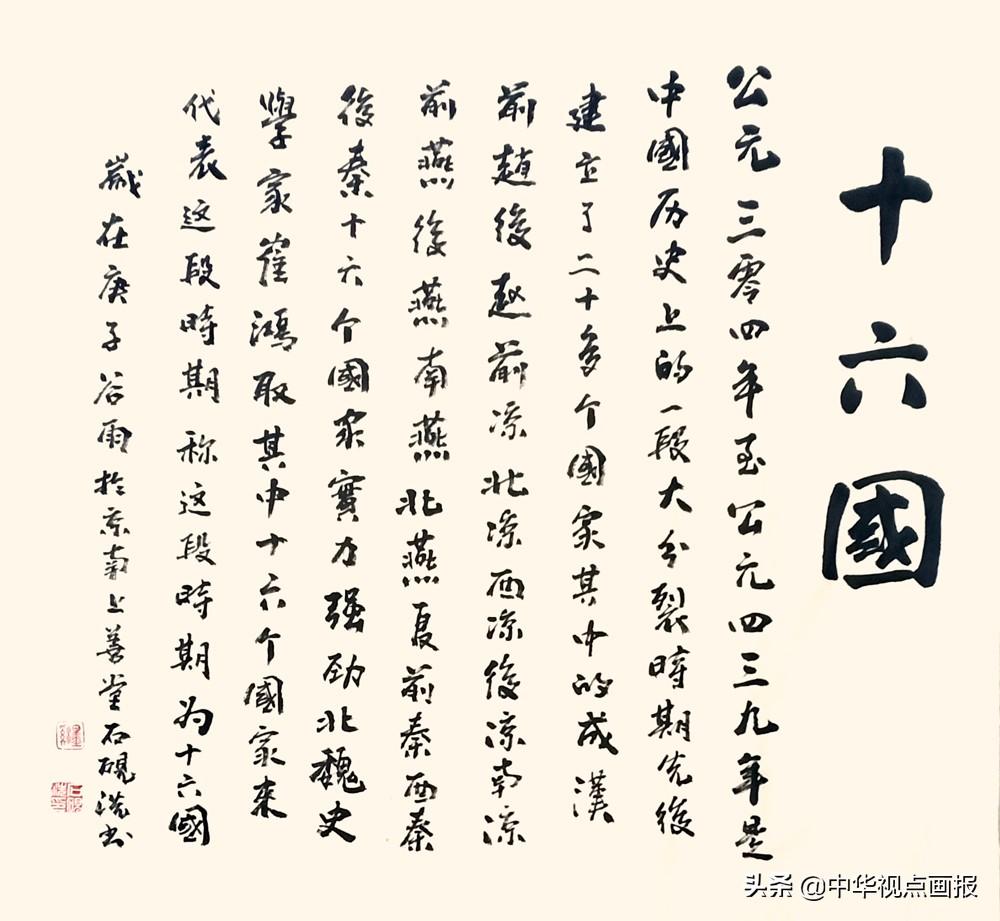 十六國
公元三零四年至公元四三九年是
中國历史上的一段大分裂時期先後
建立了二十多个國家其中的成漢
前趙後趙前凉北凉西凉後凉南凉
前燕後燕南燕北燕夏前秦西秦
後秦十六个國家實力强劲北魏史
學家崔鴻取其中十六个國家来
代表这段時期称这段時期为十六國
歲在庚子谷雨於京南上善堂石硯洗书
头条 @中华视点画报